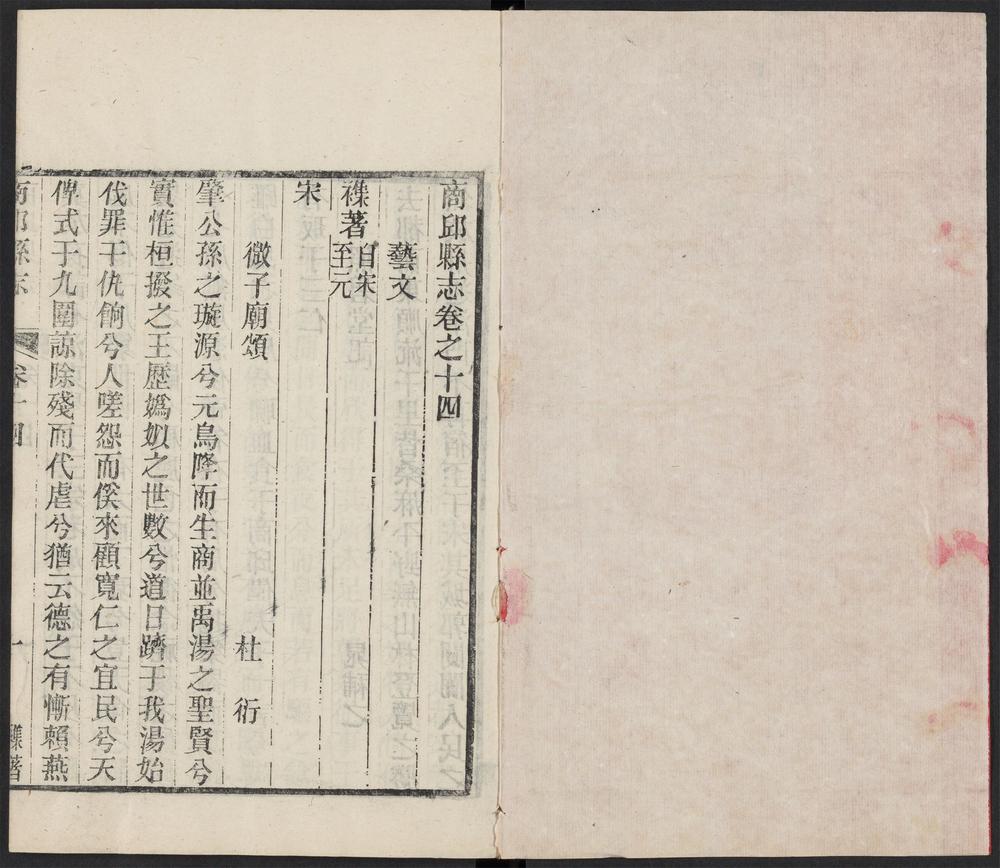 商邱縣志卷之十四
藝文
襍著自宋至元
宋
微子廟頌 杜衍
肇公孫之璇源兮元鳥降而生商並禹湯之聖賢兮
實惟桓撥之王歷嬀姒之世數兮道日躋于我湯始
伐罪干仇餉兮人嗟怨而徯來顧寬仁之宜民兮天
俾式于九圍諒除殘而代虐兮猶云德之有慚賴燕
商邱縣志 卷十四 一 襍著